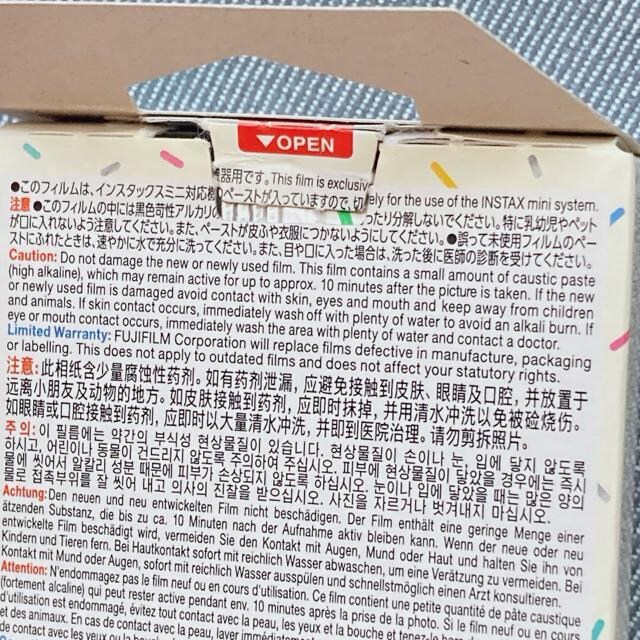 ▼OPEN
●このフィルムは、インスタックスミニ対応機器用です。This film is exclusively for the use of the INSTAX mini system.
注意 ●このフィルムの中には黒色苛性アルカリのペーストが入っていますので、切ったり分解しないでください。特に乳幼児やペット
が口に入れないよう注意してください。また、ペーストが皮ふや衣服につかないようにしてください。●誤って未使用フィルムのペー
ストにふれたときは、速やかに水で充分に洗ってください。また、目や口に入った場合は、洗った後に医師の診断を受けてください。
Caution: Do not damage the new or newly used film. This film contains a small amount of caustic paste
(high alkaline), which may remain active for up to approx. 10 minutes after the picture is taken. If the new
or newly used film is damaged avoid contact with skin, eyes and mouth and keep away from children
and animals. If skin contact occurs, immediately wash off with plenty of water to avoid an alkali burn. If
eye or mouth contact occurs, immediately wash the area with plenty of water and contact a doctor.
Limited Warranty: FUJIFILM Corporation will replace films defective in manufacture, packaging
or labelling. This does not apply to outdated films and does not affect your statutory rights.
注意: 此相纸含少量腐蚀性药剂。如有药剂泄漏，应避免接触到皮肤、眼睛及口腔，并放置于
远离小朋友及动物的地方。如皮肤接触到药剂，应即时抹掉，并用清水冲洗以免被硷烧伤。
如眼睛或口腔接触到药剂，应即时以大量清水冲洗，并即到医院治理。请勿剪拆照片。
주의: 이 필름에는 약간의 부식성 현상물질이 있습니다. 현상물질이 손이나 눈, 입에 닿지 않도록
하시고, 어린이나 동물이 건드리지 않도록 주의하여 주십시오. 피부에 현상물질이 닿았을 경우에는 즉시
물에 씻어서 알칼리 성분 때문에 피부가 손상되지 않도록 하십시오. 눈이나 입에 닿았을 때는 많은 양의
물로 접촉부위를 잘 씻어 내고 의사의 진찰을 받으십시오. 사진을 자르거나 벗겨내지 마십시오.
Achtung: Den neuen und neu entwickelten Film nicht beschädigen. Der Film enthält eine geringe Menge einer
ätzenden Substanz, die bis zu ca. 10 Minuten nach der Aufnahme aktiv bleiben kann. Wenn der neue oder neu
entwickelte Film beschädigt wird, vermeiden Sie den Kontakt mit Augen, Mund oder Haut und halten Sie ihn von
Kindern und Tieren fern. Bei Hautkontakt sofort mit reichlich Wasser abwaschen, um eine Verätzung zu vermeiden. Bei
Kontakt mit Mund oder Augen, sofort mit reichlich Wasser ausspülen und schnellstmöglich einen Arzt konsultieren.
Attention: N'endommagez pas le film neuf ou en cours d'utilisation. Ce film contient une petite quantité de pâte caustique
(fortement alcaline) qui peut rester active pendant env. 10 minutes après la prise de la photo. Si le film neuf ou en cours
d'utilisation est endommagé, évitez tout contact avec la peau, les yeux et la bouche et tenez-le hors
et des animaux. En cas de contact avec la peau, laver immédiatement
de contact avec les yeux ou la